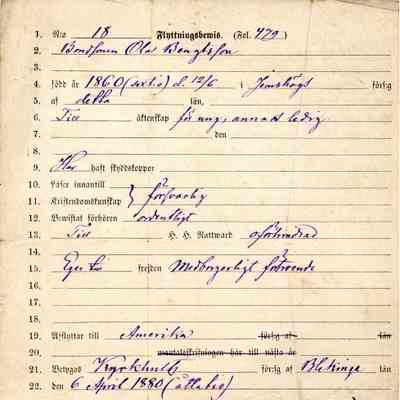 1. N:o 18 Flyttningsbewis. (Fol. 479)
2. Bondsonen Ola Bengtsson
3.
4. född år 1860 (sextio) d. 12/6 i Jemshögs förs:g
5. af detta län,
6. Till äktenskap för ung, annars ledig
7. den
8.
9. Har haft skyddskoppor
10. Läser innantill
11. Kristendomskunskap } försvarlig
12. Bewistat förhören ordentligt
13. Till H. H. Nattward oförhindrad
14.
15. Eger frejden Medborgerligt förtroende
16.
17.
18.
19. Afflyttar till Amerika förs:g af län
20. mantalsskrifningen här till nästa år
21. Betygas Kyrkhult förs:g af Blekinge län
22. den 6 April 1880 (åttatio)